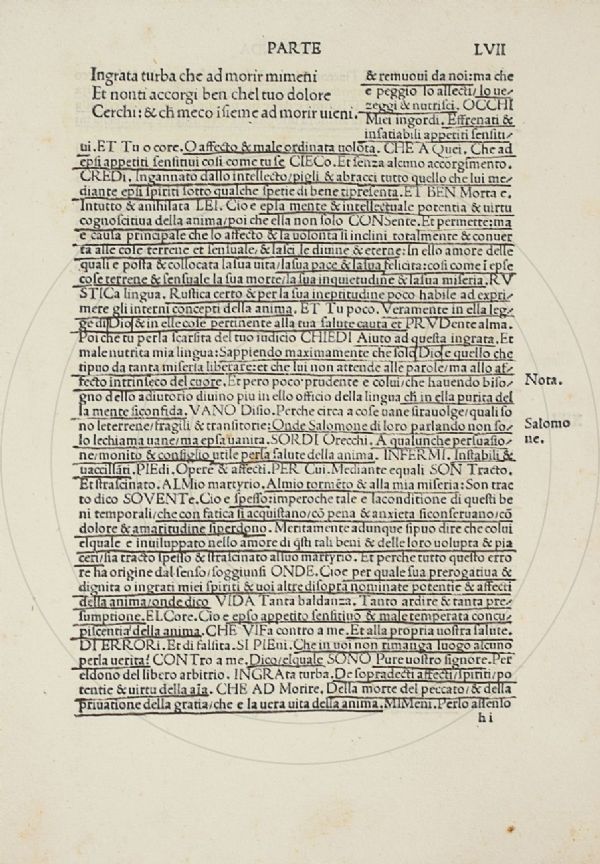 PARTE LVII
Ingrata turba che ad morir mimeni
Et nonti accorgi ben chel tuo dolore
Cerchi: & ch̄ meco īsieme ad morir uieni.
& remuoui da noi: ma che
e peggio lo affecti/lo ue/
zeggi & nutrisci. OCCHI
Miei ingordi. Effrenati &
insatiabili appetiti sensiti/
ui. ET Tu o core. O affecto & male ordinata uolōta. CHE A Quei. Che ad
epsi appetiti sensitiui cosi come tu se CIECo. Et senza alcuno accorgimento.
CREDi. Ingannato dallo intellecto/pigli & abracci tutto quello che lui me/
diante epsi spiriti sotto qualche spetie di bene tipresenta. ET BEN Morta e.
Intutto & anihilata LEI. Cio e epsa mente & intellectuale potentia & uirtu
cognoscitiua della anima/poi che ella non solo CONSente. Et permette: ma
e causa principale che lo affecto & la uolonta si inclini totalmente & conuer
ta alle cose terrene et sensuale/& lasci le diuine & eterne: In ello amore delle
quali e posta & collocata la sua uita/la sua pace & la sua felicita: cosi come ī epse
cose terrene & sensuale la sua morte/la sua inquietudine & la sua miseria. RV
STICa lingua. Rustica certo & per la sua ineptitudine poco habile ad expri/
mere gli interni concepti della anima. ET Tu poco. Veramente in ella leg/
ge di Dio & in elle cole pertinente alla tua salute cauta et PRVDente alma.
Poi che tu per la scarsita del tuo iudicio CHIEDI Aiuto ad questa ingrata. Et
male nutrita mia lingua: Sappiendo maximamente che solo Dio e quello che
tipuo da tanta miseria liberare: et che lui non attende alle parole/ma allo af/
fecto intrinseco del cuore. Et pero poco prudente e colui/che hauendo biso/
gno dello adiutorio diuino piu in ello officio della lingua ch̄ in ella purita del
la mente siconfida. VANO Disio. Perche circa a cose uane sirauolge/quali so
no le terrene/fragili & transitorie: Onde Salomone di loro parlando non so/
lo lechiama uane/ma epsa uanita. SORDI Orecchi. A qualunche persuasio/
ne/monito & consiglio utile persa salute della anima. INFERMI. Instabili &
uaccillāti. PIEdi. Opere & affecti. PER Cui. Mediante equali SON Tracto.
Et strascinato. ALMio martyrio. Almio tormēto & alla mia miseria: Son trac
to dico SOVENTe. Cio e spesso: imperoche tale e la conditione di questi be
ni temporali/che con fatica si acquistano/cō pena & anxieta siconseruano/cō
dolore & amaritudine siperdono. Meritamente adunque sipuo dire che colui
elquale e inuiluppato nello amore di q̄sti tali beni & delle loro uolupta & pia
ceri/sia tracto spesso & strascinato alsuo martyrio. Et perche tutto questo erro
re ha origine dal senso/soggiunsi ONDE. Cioe per quale sua prerogatiua &
dignita o ingrati miei spiriti & uoi altre disopra nominate potentie & affecti
della anima/onde dico VIDA Tanta baldanza. Tanto ardire & tanta pre/
sumptione. ELCore. Cio e epso appetito sensitiuo & male temperata concu/
piscentia della anima. CHE VIFa contro a me. Et alla propria uostra salute.
DI ERRORI. Et di falsita. SI PIEni. Che in uoi non rimanga luogo alcuno
perla uerita! CONTro a me. Dico/elquale SONO Pure uostro signore. Per
eldono del libero arbitrio. INGRAta turba. De sopradecti affecti/spiriti/po
tentie & uirtu della aīa. CHE AD Morire. Della morte del peccato/& della
priuatione della gratia/che e la uera uita della anima. MIMeni. Perlo assenso
h i
Nota.
Salomo
ne.